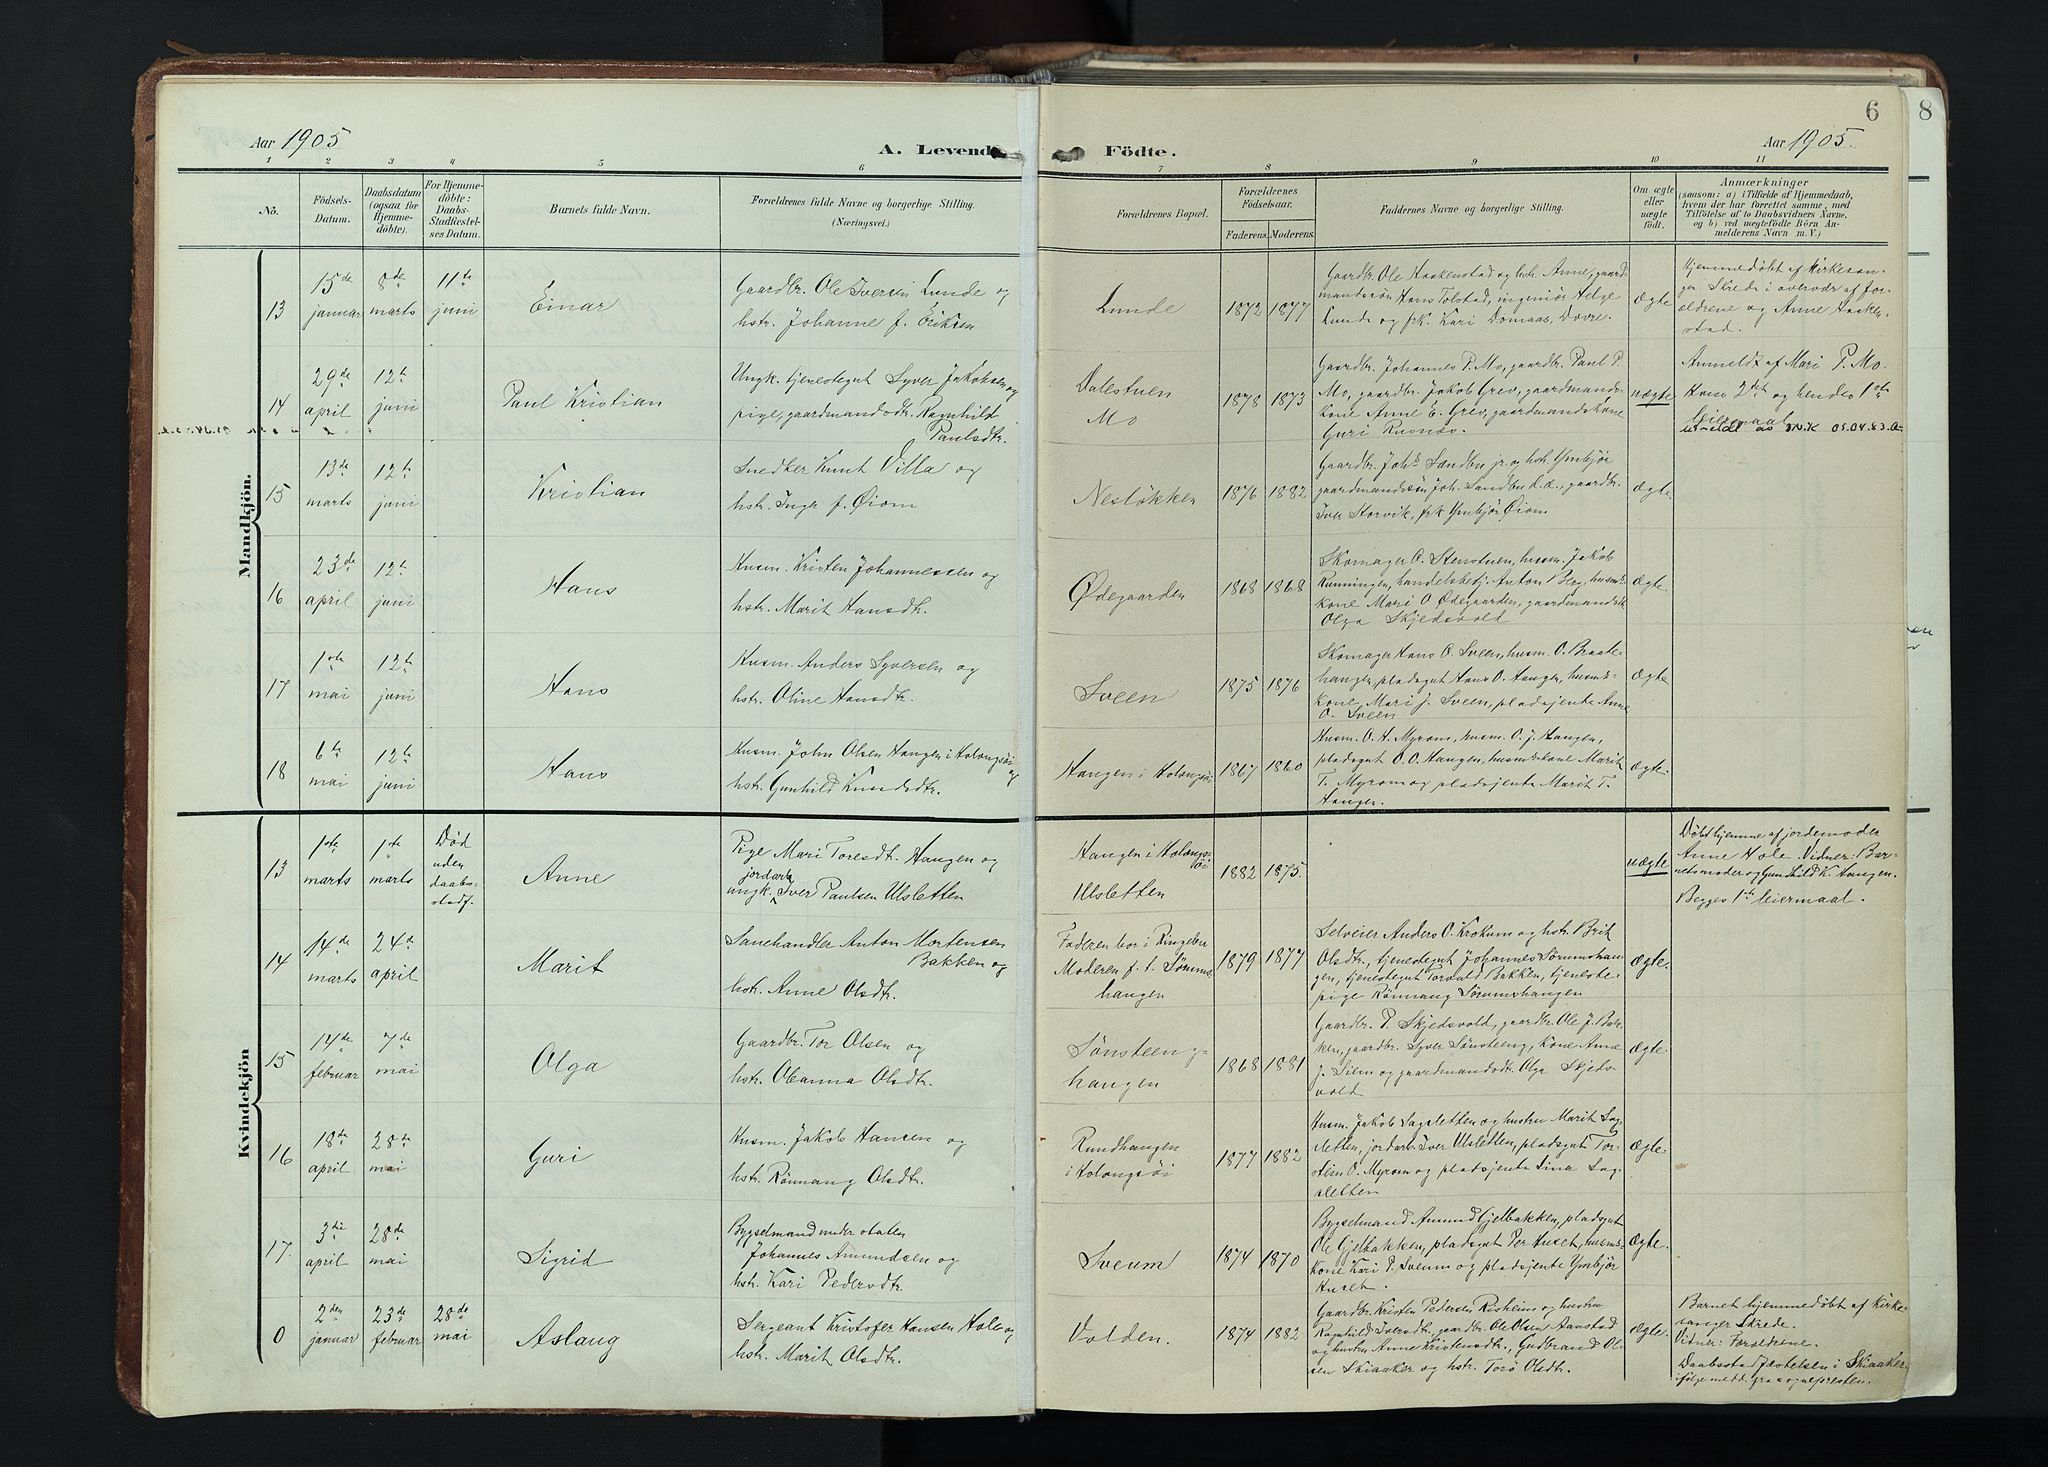 Aar 1905
A. Levende
Födte.
Aar 1905.
6
8
1 2 3 4 5 6 7 8 9 10 11
No.
Födsels-
Datum.
Daabsdatum
(ogsaa for
Hjemme-
döbte).
For Hjemme-
döbte:
Daabs-
Stadfæstel-
ses Datum.
Barnets fulde Navn.
Forældrenes fulde Navne og borgerlige Stilling.
(Næringsvei.)
Forældrenes Bopæl.
Forældrenes
Födselsaar.
Faderens. Moderens.
Faddernes Navne og borgerlige Stilling.
Om ægte
eller
uægte
födt.
Anmærkninger
(saasom: a) i Tilfælde af Hjemmedaab,
hvem der har forrettet samme, med
Tilföielse af to Daabsvidners Navne,
og b) ved uægtefödte Börn An-
melderens Navn m. V.)
Mandkjön.
13
15de
januar
8de
marts
11te
juni
Einar
Gaardbr. Ole Iversen Lunde og
hstr. Johanne f. Eriksen
Lunde
1872 1877
Gaardbr. Ole Haakenstad og hstr. Anne, gaard-
mandssøn Hans Tolstad, ingeniør Helge
Lunde og frk. Kari Domaas, Dovre.
Ægte
Hjemmedøbt af kirkesan-
ger Skrede i overvær af for-
ældrene og Anne Haaken-
stad.
14
29de
april
12te
juni
Paul Kristian
Ungk. tjenestegut Syver Jakobsen og
pige, gaardmandsdtr. Ragnhild
Paulsdtr.
Dalestuen
Mo
1878 1873
Gaardbr. Johannes P. Mo, gaardbr. Paul P.
Mo, gaardbr. Jakob Grev, gaardmands-
kone Anne E. Grev, gaardmandskone
Guri Rusnæs.
uægte
Anmeldt af Mari P. Mo.
Hans 2det og hendes 1ste
leiermaal.
15
13de
marts
12te
juni
Kristian
Snedker Knut Villa og
hstr. Inga f. Øiom
Nesløkken
1876 1882
Gaardbr. Johs. Sandbu jr. og hstr. Ymbjør
gaardmandssøn Joh. Sandbu, gaardbr.
Iver Storvik, frk Ymbjør Øiom
Ægte
16
23de
april
12te
juni
Hans
Husm. Kristen Johannessen og
hstr. Marit Hansdtr.
Ødegaarden
1868 1868
Skomager O. Stenstuen, husm. Jakob
Runningen, handelsbetj. Anton Berg, husmds.
kone Mari O Ødegaarden, gaardmandsdtr
Olga Skjedsvold
Ægte
17
1ste
mai
12te
juni
Hans
Husm. Anders Syversen og
hstr. Oline Hansdtr.
Sveen
1875 1876
Skomager Hans O. Sveen, husm. O. Braate-
hangen, pladsgut Hans O. Hangen, husmds-
kone Mari J. Sveen, pladsjente Anne
O. Sveen
Ægte
18
6te
mai
12te
juni
Hans
Husm. John Olsen Hangen i Holongsøi
og
hstr. Gunhild Knudsdtr.
Hangen i Holongsøi
1867 1860
Husm. O. H. Myrom, husm. O. J. Hangen,
pladsgut O. O. Hangen, husmdskone Marit
T. Myrom og pladsjente Marit T.
Hangen.
Ægte
Kvindekjön
13
1ste
marts
1ste
marts
Død
uden
daabs-
stadf.
Anne
Pige Mari Toresdtr. Hangen og
jordarb.
ungk. Iver Paulsen Ulsletten
Hangen i Holongs-
øi
Ulsletten
1882 1875.
uægte
Døbt hjemme af jordemoder
Anne Hole. Vidner: Bar-
netsmoder og Gunhild K. Hangen.
Begges 1ste leiermaal.
14
14de
marts
24de
april
Marit
Sauehandler Anton Mortensen
Bakken og
hstr. Anne Olsdtr.
Faderen bor i Ringebu
Moderen f. t. Sørums-
hangen
1879 1877
Selveier Anders O. Krokum og hstr. Brit
Olsdtr., tjenestegut Johannes Sørumshan-
gen, tjenestegut Torvald Bakken, tjeneste-
pige Rønnaug Sørumshangen
Ægte.
15
14de
februar
7de
mai
Olga
Gaardbr. Tor Olsen og
hstr. Oleanna Olsdtr.
Sønsteeng-
hangen
1868 1881
Gaardbr. P. Skjedsvold, gaardbr. Ole J. Bak-
ken, gaardbr. Syver Sønsteeng, kone Anne
J. Siem og gaardmandsdt. Olga Skjeds-
vold
Ægte.
16
18de
april
28de
mai
Guri
Husm. Jakob Hansen og
hstr. Rønnaug Olsdtr.
Rundhangen
i Holongsøi
1877 1882
Husm. Jakob Sagsletten og hustru Marit Sag-
sletten, jordarb. Iver Ulsletten, pladsgut Tor-
stein O. Myrom og pladsjente Lina Sag-
sletten
Ægte.
17.
3die
april
28de
mai
Sigrid
Bygselmand under staten
Johannes Amundsen og
hstr. Kari Pedersdtr.
Sveum
1874 1870
Bygselmand Amund Gjelbakken, pladsgut
Ole Gjelbakken, pladsgut Per Huset, husmds-
kone Kari P. Sveum og pladsjente Ymbjør
Huset.
Ægte.
0
2den
januar
23de
februar
28de
mai
Aslaug
Sergeant Kristofer Hansen Hole og
hstr. Marit Olsdtr.
Volden.
1874 1882
Gaardbr. Kristen Pedersen Risheim og hustru
Ragnhild Iversdtr., gaardbr. Ole Olsen Aanstad
og hustru Anne Kristensdtr., Gudbrand Ol-
sen Skiaaker og hstr. Torø Olsdtr.
Ægte.
Barnet hjemmedøbt af kirke-
sanger Skrede.
Vidner: Forældrene.
Daabsstadfæstelsen i Skiaaker
ifølge medd. fra sognepresten.